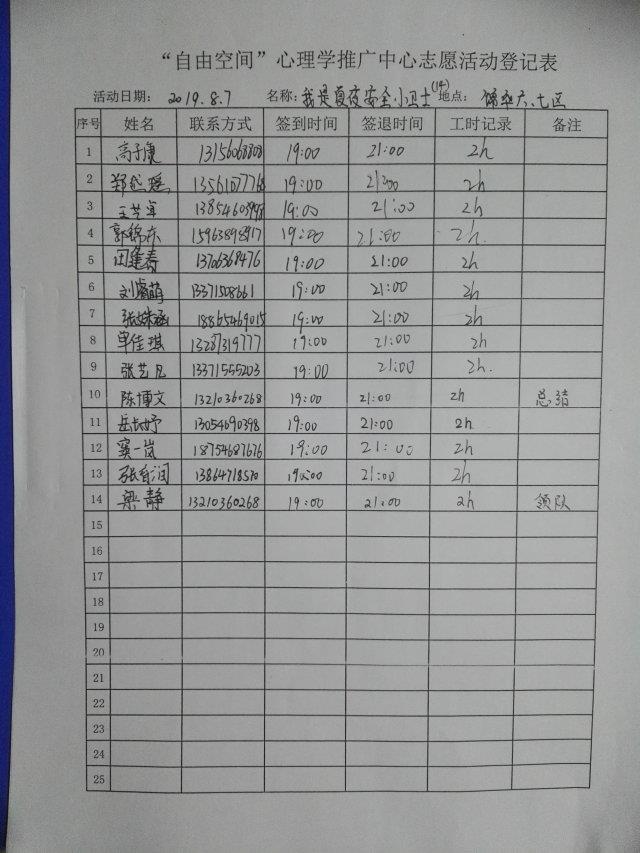 “自由空间”心理学推广中心志愿活动登记表
活动日期： 2019.8.7 名称：我是夏夜安全小卫士(14) 地点： 锦华六、七区
序号 姓名 联系方式 签到时间 签退时间 工时记录 备注
1 高子康 13156068808 19:00 21:00 2h
2 郑越瑶 13561077768 19:00 21:00 2h
3 19:00 21:00 2h
4 郭锦东 15963898917 19:00 21:00 2h.
5 田建春 13706368476 19:00 21:00 2h
6 刘睿萌 13371508661 19:00 21:00 2h
7 张姝涵 18865469015 19:00 21:00 2h
8 单佳琪 13287319777 19:00 21:00 2h
9 张艺凡 13371555203 19:00 21:00 2h.
10 陈博文 13210360268 19:00 21:00 2h 总结
11 岳长妤 13054690398 19:00 21:00 2h
12 窦一岚 18754687676 19:00 21:00 2h
13 19:00 21:00 2h
14 梁静 13210360268 19:00 21:00 2h 领队
15
16
17
18
19
20
21
22
23
24
25